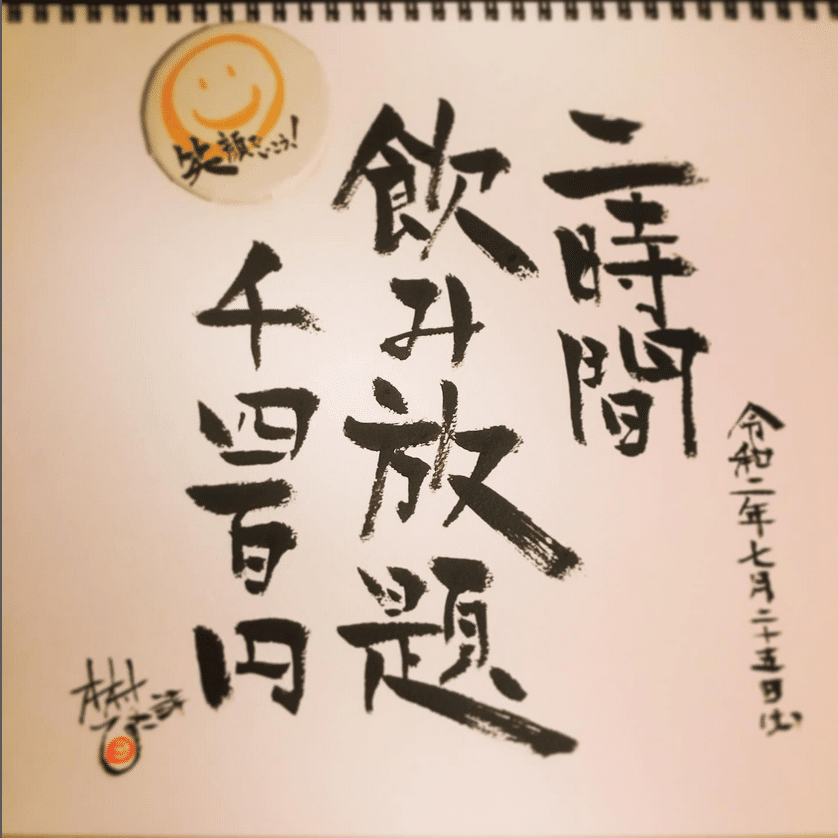 令和二年七月二十五日(土)
二時間
飲み放題
千四百円
笑顔でいこう!